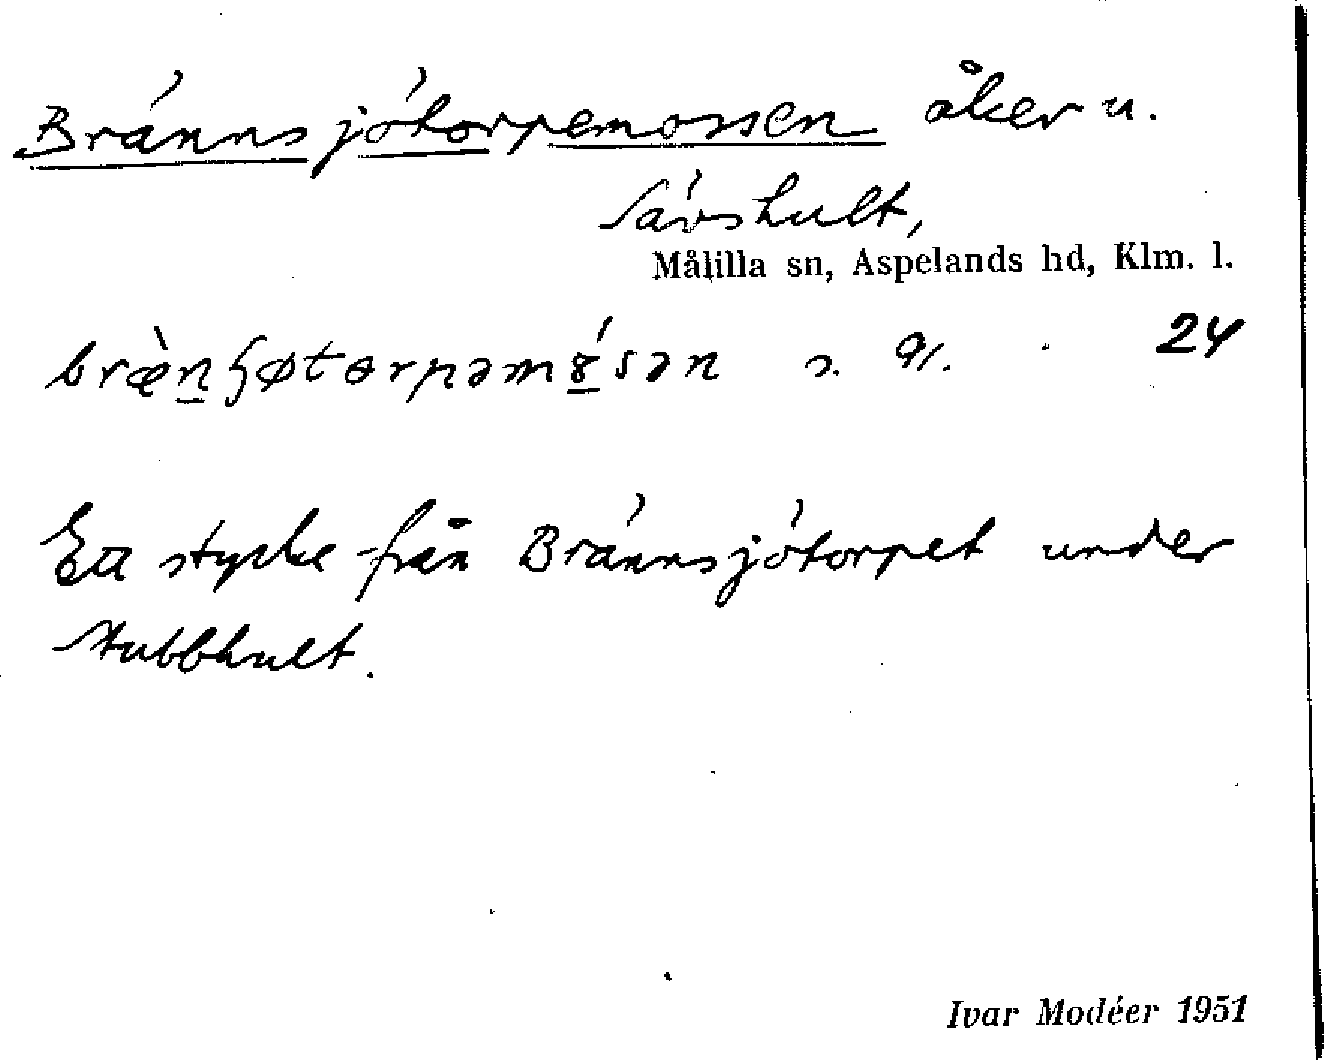 Brännsjötorpemossen åker u.
Sävshult,
Målilla sn, Aspelands hd, Klm. l.
bræ̀n̲ɧøtorpəmɤ́sən s. 24
Ett stycke från Brännsjötorpet under
Stubbhult.
Ivar Modéer 1951